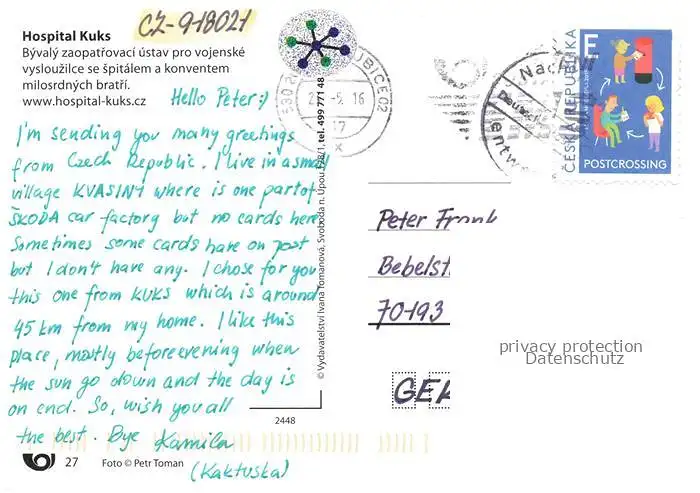 CZ-918021
Hospital Kuks
Bývalý zaopatřovací ústav pro vojenské
vysloužilce se špitálem a konventem
milosrdných bratří.
www.hospital-kuks.cz
Hello Peter :)
I'm sending you many greetings
from Czech Republic. I live in a small
village KVASINY where is one part of
ŠKODA car factory but no cards here.
Sometimes some cards have on post
but I don't have any. I chose for you
this one from KUKS which is around
45 km from my home. I like this
place, mostly before evening when
the sun go down and the day is
on end. So, wish you all
the best. Bye Kamila
(Kaktuska)
27 Foto © Petr Toman
© Vydavatelství Ivana Tomanová, Svoboda n. Úpou 528/1, tel. 499 771 48
2448
-5. 16
17
x
Nachv
Deutsc
entw
E
ČESKÁ REPUBLIKA
POSTCROSSING
Peter Frank
Bebelst
70193
GER
privacy protection
Datenschutz